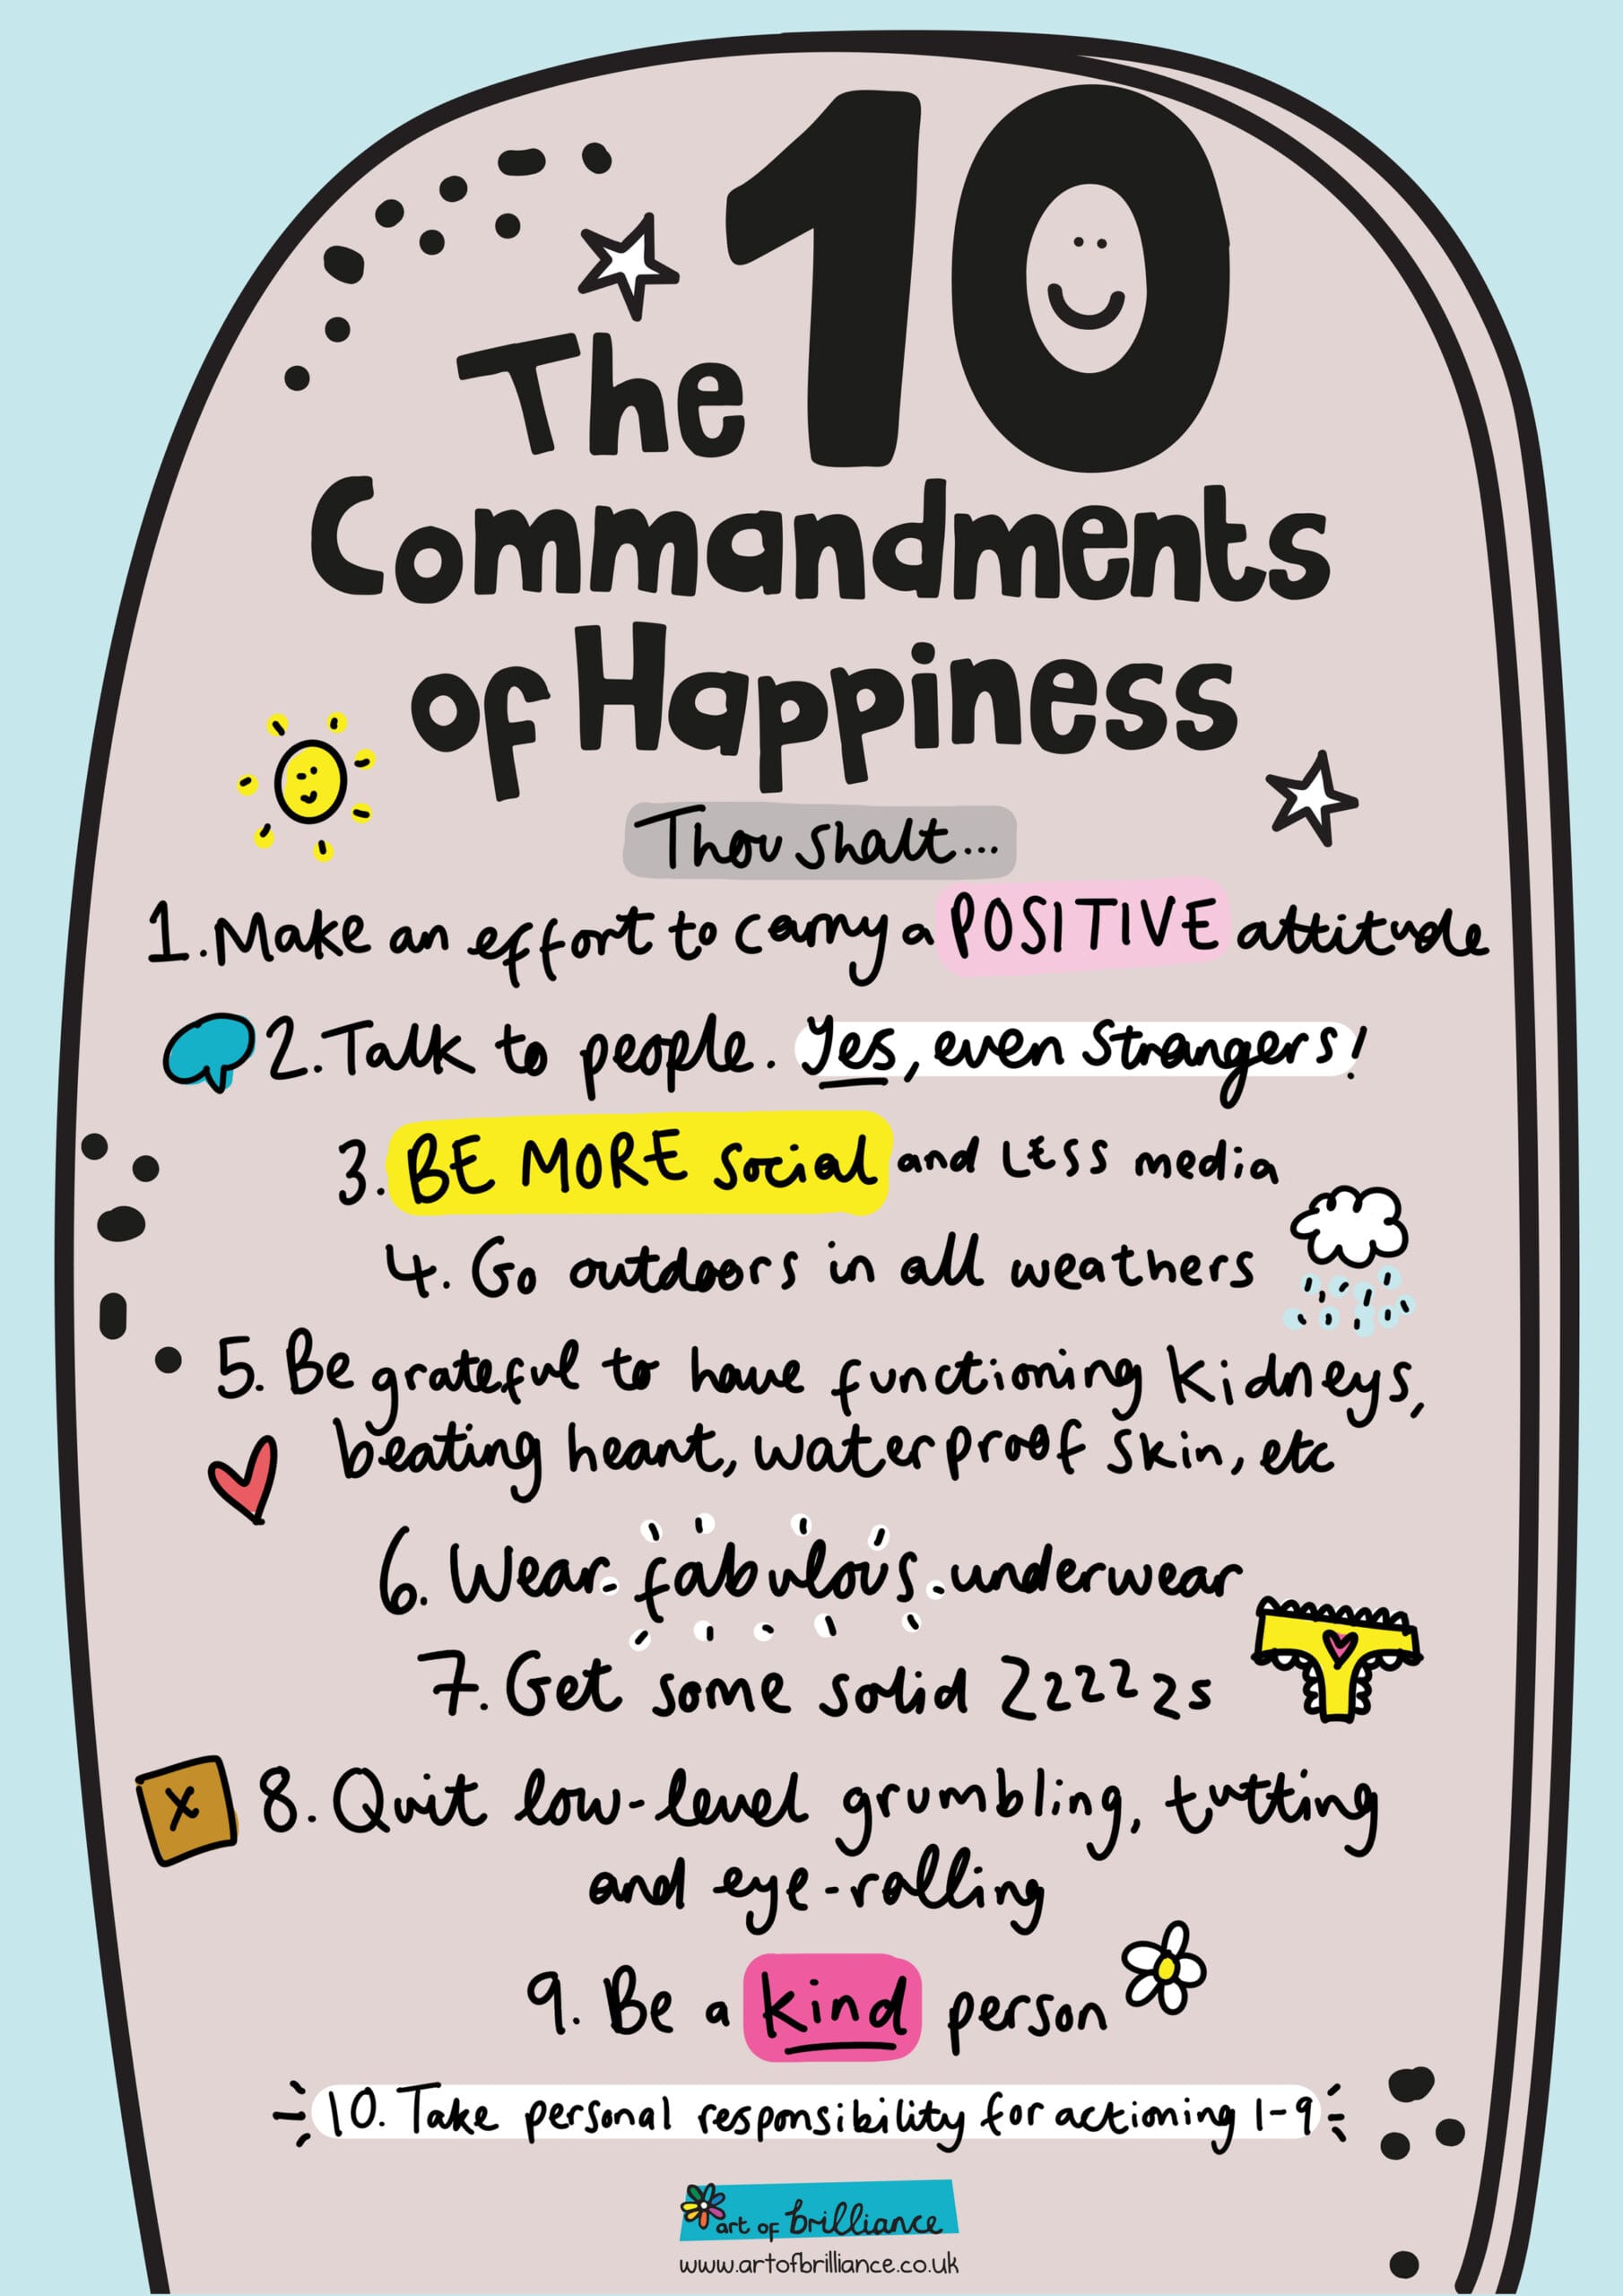 The 10
Commandments
of Happiness
Thou shalt...
1. Make an effort to carry a POSITIVE attitude
2. Talk to people. Yes, even strangers!
3. BE MORE social and LESS media
4. Go outdoors in all weathers
5. Be grateful to have functioning kidneys,
beating heart, waterproof skin, etc
6. Wear fabulous underwear
7. Get some solid Zzzzzs
8. Quit low-level grumbling, tutting
and eye-rolling
9. Be a kind person
10. Take personal responsibility for actioning 1-9
art of brilliance
www.artofbrilliance.co.uk